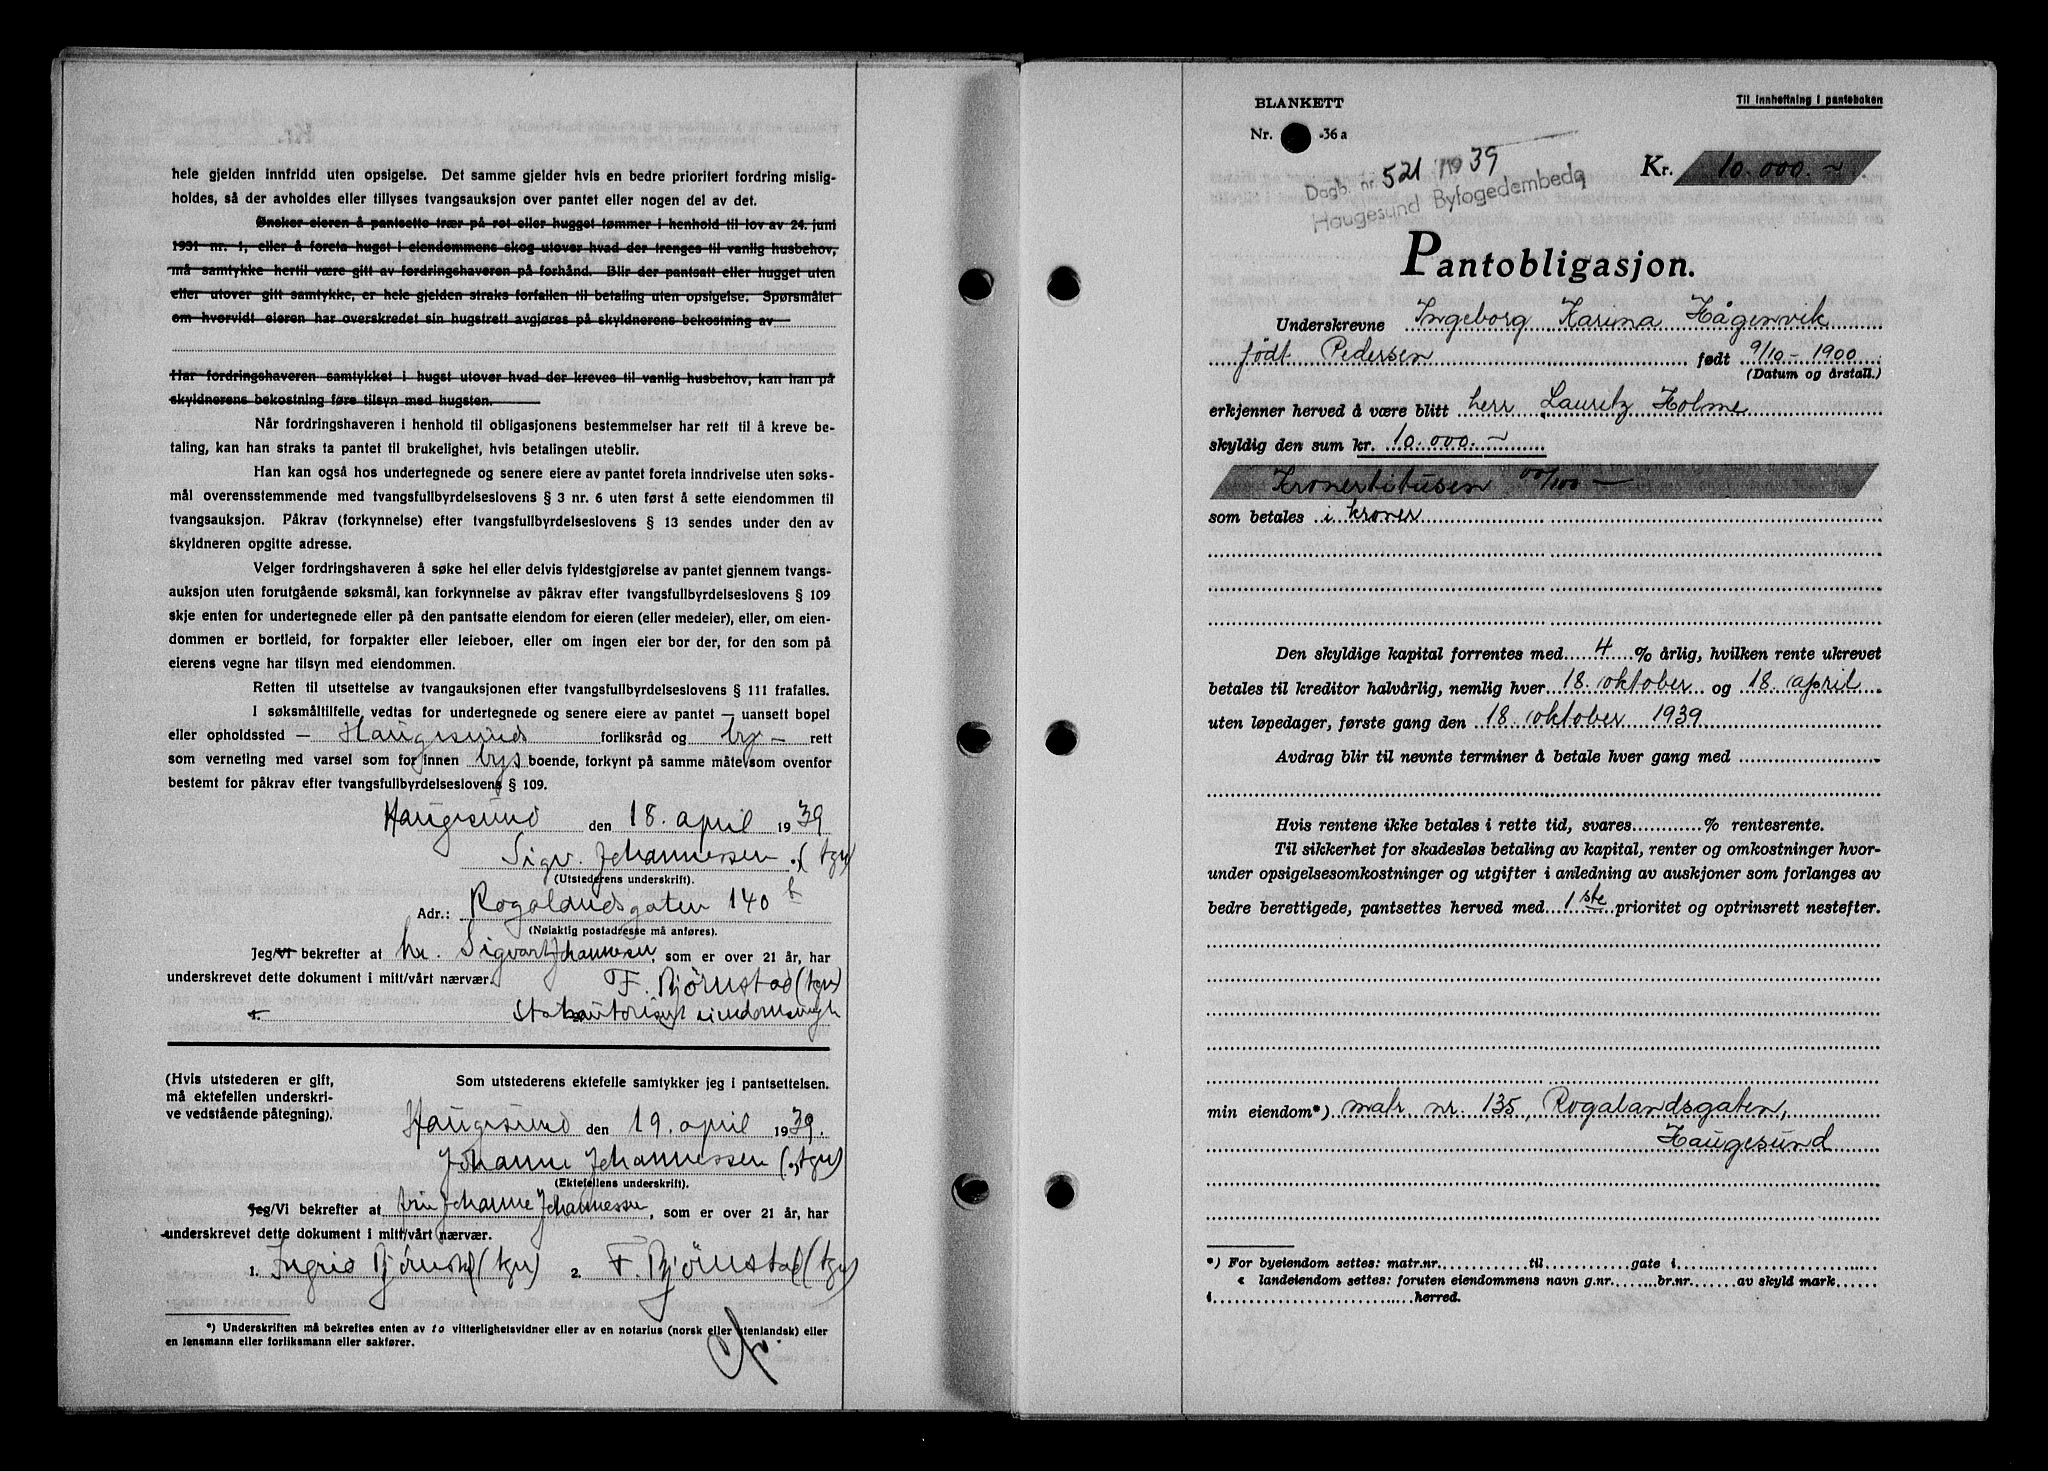 hele gjelden innfridd uten opsigelse. Det samme gjelder hvis en bedre prioritert fordring mislig-
holdes, så der avholdes eller tillyses tvangsauksjon over pantet eller nogen del av det.
Ønsker eieren å pantsette trær på rot eller hugget tømmer i henhold til lov av 24. juni
1931 nr. 1, eller å foreta hugst i eiendommens skog utover hvad der trenges til vanlig husbehov,
må samtykke hertil være gitt av fordringshaveren på forhånd. Blir der pantsatt eller hugget uten
eller utover gitt samtykke, er hele gjelden straks forfallen til betaling uten opsigelse. Spørsmålet
om hvorvidt eieren har overskredet sin hugstrett avgjøres på skyldnerens bekostning av
Har fordringshaveren samtykket i hugst utover hvad der kreves til vanlig husbehov, kan han på
skyldnerens bekostning føre tilsyn med hugsten.
Når fordringshaveren i henhold til obligasjonens bestemmelser har rett til å kreve be-
taling, kan han straks ta pantet til brukelighet, hvis betalingen uteblir.
Han kan også hos undertegnede og senere eiere av pantet foreta inndrivelse uten søks-
mål overensstemmende med tvangsfullbyrdelseslovens § 3 nr. 6 uten først å sette eiendommen til
tvangsauksjon. Påkrav (forkynnelse) efter tvangsfullbyrdelseslovens § 13 sendes under den av
skyldneren opgitte adresse.
Velger fordringshaveren å søke hel eller delvis fyldestgjørelse av pantet gjennem tvangs-
auksjon uten forutgående søksmål, kan forkynnelse av påkrav efter tvangsfullbyrdelseslovens § 109
skje enten for undertegnede eller på den pantsatte eiendom for eieren (eller medeier), eller, om eien-
dommen er bortleid, for forpakter eller leieboer, eller om ingen eier bor der, for den som på
eierens vegne har tilsyn med eiendommen.
Retten til utsettelse av tvangauksjonen efter tvangsfullbyrdelseslovens § 111 frafalles.
I søksmåltilfelle vedtas for undertegnede og senere eiere av pantet – uansett bopel
eller opholdssted – Haugesunds forliksråd og by- rett
som verneting med varsel som for innen bys boende, forkynt på samme måte som ovenfor
bestemt for påkrav efter tvangsfullbyrdelseslovens § 109.
Haugesund den 18. april 1939
Sigv. Johannessen (tgn)
(Utstederens underskrift).
Adr.: Rogalandsgaten 140 b
(Nøiaktig postadresse må anføres).
Jeg/Vi bekrefter at hr. Sigvart Johannessen, som er over 21 år, har
underskrevet dette dokument i mitt/vårt nærvær. F. Bjørnstad (tgn)
1. Statsautorisert eiendomsmegler
(Hvis utstederen er gift, Som utstederens ektefelle samtykker jeg i pantsettelsen.
må ektefellen underskri-
ve vedstående påtegning).
Haugesund den 19. april 1939.
Johanne Johannessen (tgn)
(Ektefellens underskrift).
Jeg/Vi bekrefter at fru Johanne Johannessen, som er over 21 år, har
underskrevet dette dokument i mitt/vårt nærvær.
1. Ingrid Bjørnstad (tgn) 2. F. Bjørnstad (tgn)
*) Underskriften må bekreftes enten av to vitterlighetsvidner eller av en notarius (norsk eller utenlandsk) eller
en lensmann eller forliksmann eller sakfører.
BLANKETT
Til innheftning i panteboken
Nr. -36 a
Dagb. nr. 521 1939
Haugesund Byfogedembede
Kr. 10.000.~
Pantobligasjon.
Underskrevne Ingeborg Karina Hågenvik
født Pedersen født 9/10-1900
(Datum og årstall.)
erkjenner herved å være blitt herr Lauritz Holme
skyldig den sum kr. 10.000.~
Kronertitusen 00/100 ~
som betales i kroner
Den skyldige kapital forrentes med 4 % årlig, hvilken rente ukrevet
betales til kreditor halvårlig, nemlig hver 18. oktober og 18. april
uten løpedager, første gang den 18. oktober 1939
Avdrag blir til nevnte terminer å betale hver gang med
Hvis rentene ikke betales i rette tid, svares % rentesrente.
Til sikkerhet for skadesløs betaling av kapital, renter og omkostninger hvor-
under opsigelsesomkostninger og utgifter i anledning av auksjoner som forlanges av
bedre berettigede, pantsettes herved med 1ste prioritet og optrinsrett nestefter.
min eiendom*) matr. nr. 135, Rogalandsgaten,
Haugesund
*) For byeiendom settes: matr.nr. til gate i
« landeiendom settes: foruten eiendommens navn g.nr. br.nr. av skyld mark
i herred.